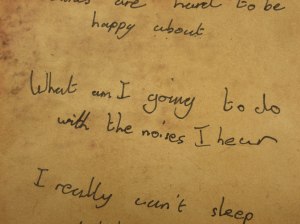 are hard to be
happy about
What am I going to do
with the noises I hear
I really can't sleep